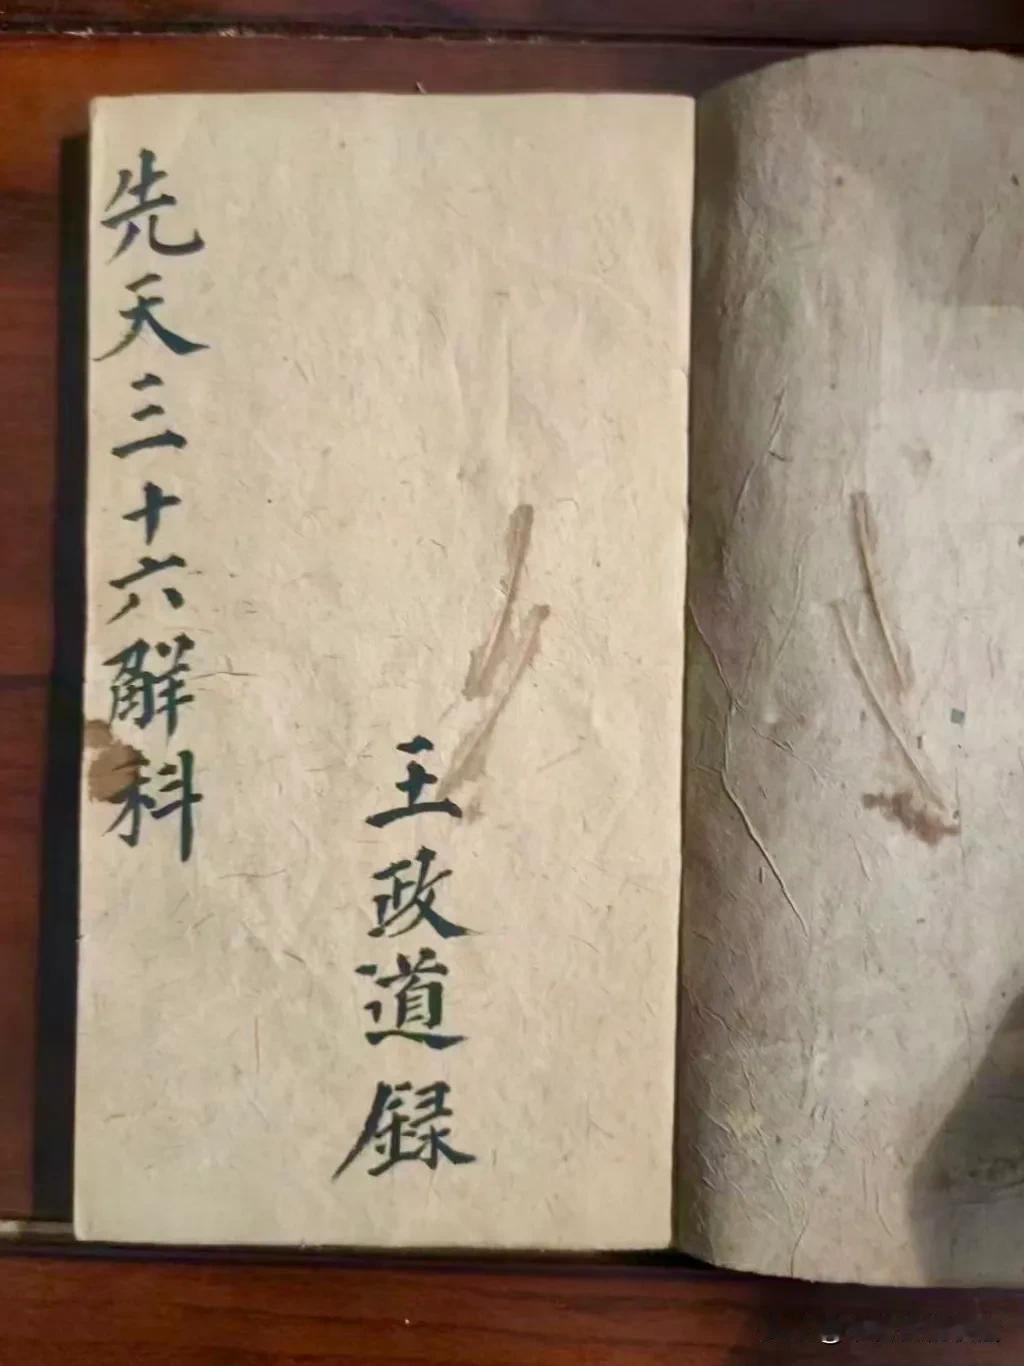 先天三十六解科
王政道録